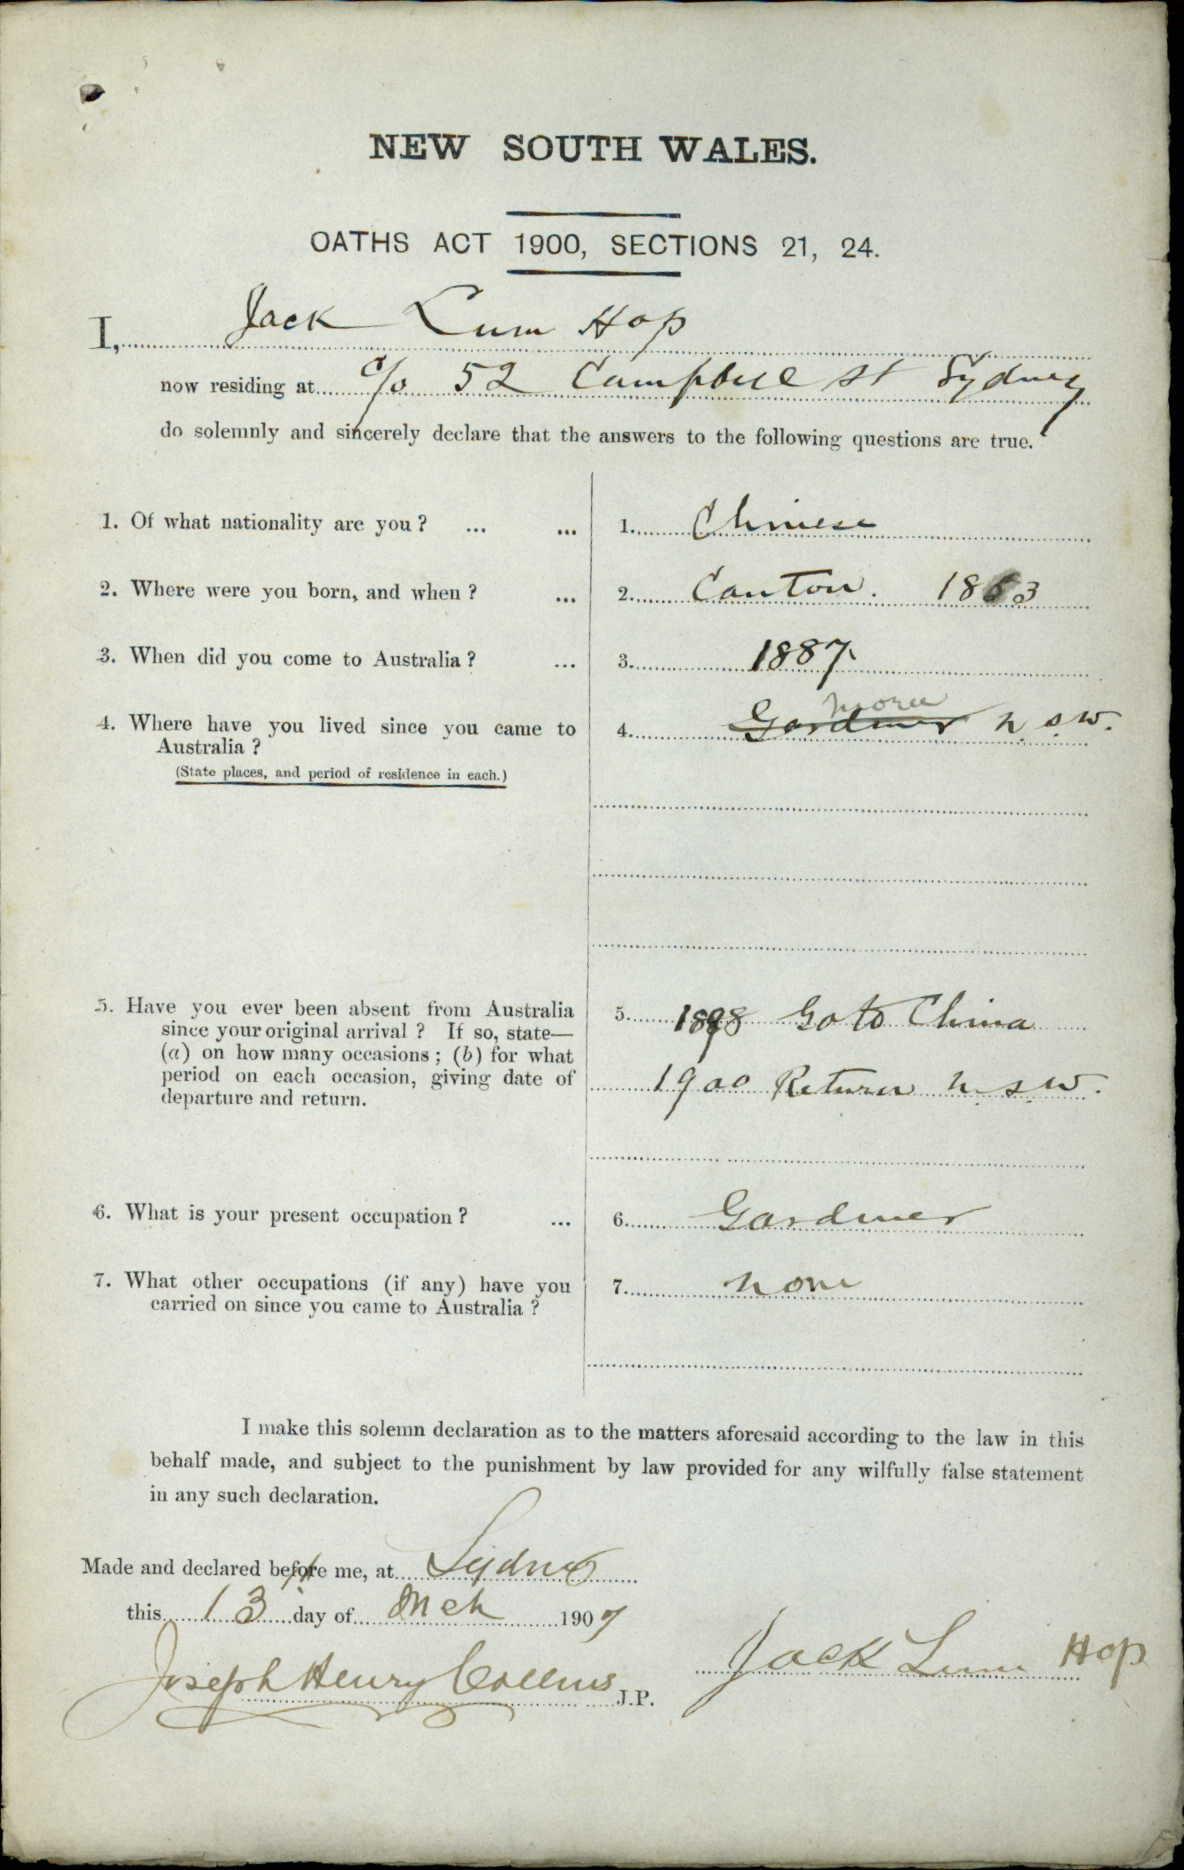 NEW SOUTH WALES.
OATHS ACT 1900, SECTIONS 21, 24.
I, Jack Lum Hop
now residing at c/o 52 Campbell st Sydney
do solemnly and sincerely declare that the answers to the following questions are true.
1. Of what nationality are you? ... ... 1. Chinese
2. Where were you born, and when? ... 2. Canton. 1863
3. When did you come to Australia? ... 3. 1887
Moree
4. Where have you lived since you came to 4. Gardener N.S.W.
Australia?
(State places, and period of residence in each.)
5. Have you ever been absent from Australia 5. 1898 Go to China
since your original arrival? If so, state—
(a) on how many occasions; (b) for what
period on each occasion, giving date of 1900 Return N.S.W.
departure and return.
6. What is your present occupation? ... 6. Gardiner
7. What other occupations (if any) have you 7. None
carried on since you came to Australia?
I make this solemn declaration as to the matters aforesaid according to the law in this
behalf made, and subject to the punishment by law provided for any wilfully false statement
in any such declaration.
Made and declared before me, at Sydney
this 13th day of Mch 1907
Joseph Henry Collins J.P. Jack Lum Hop